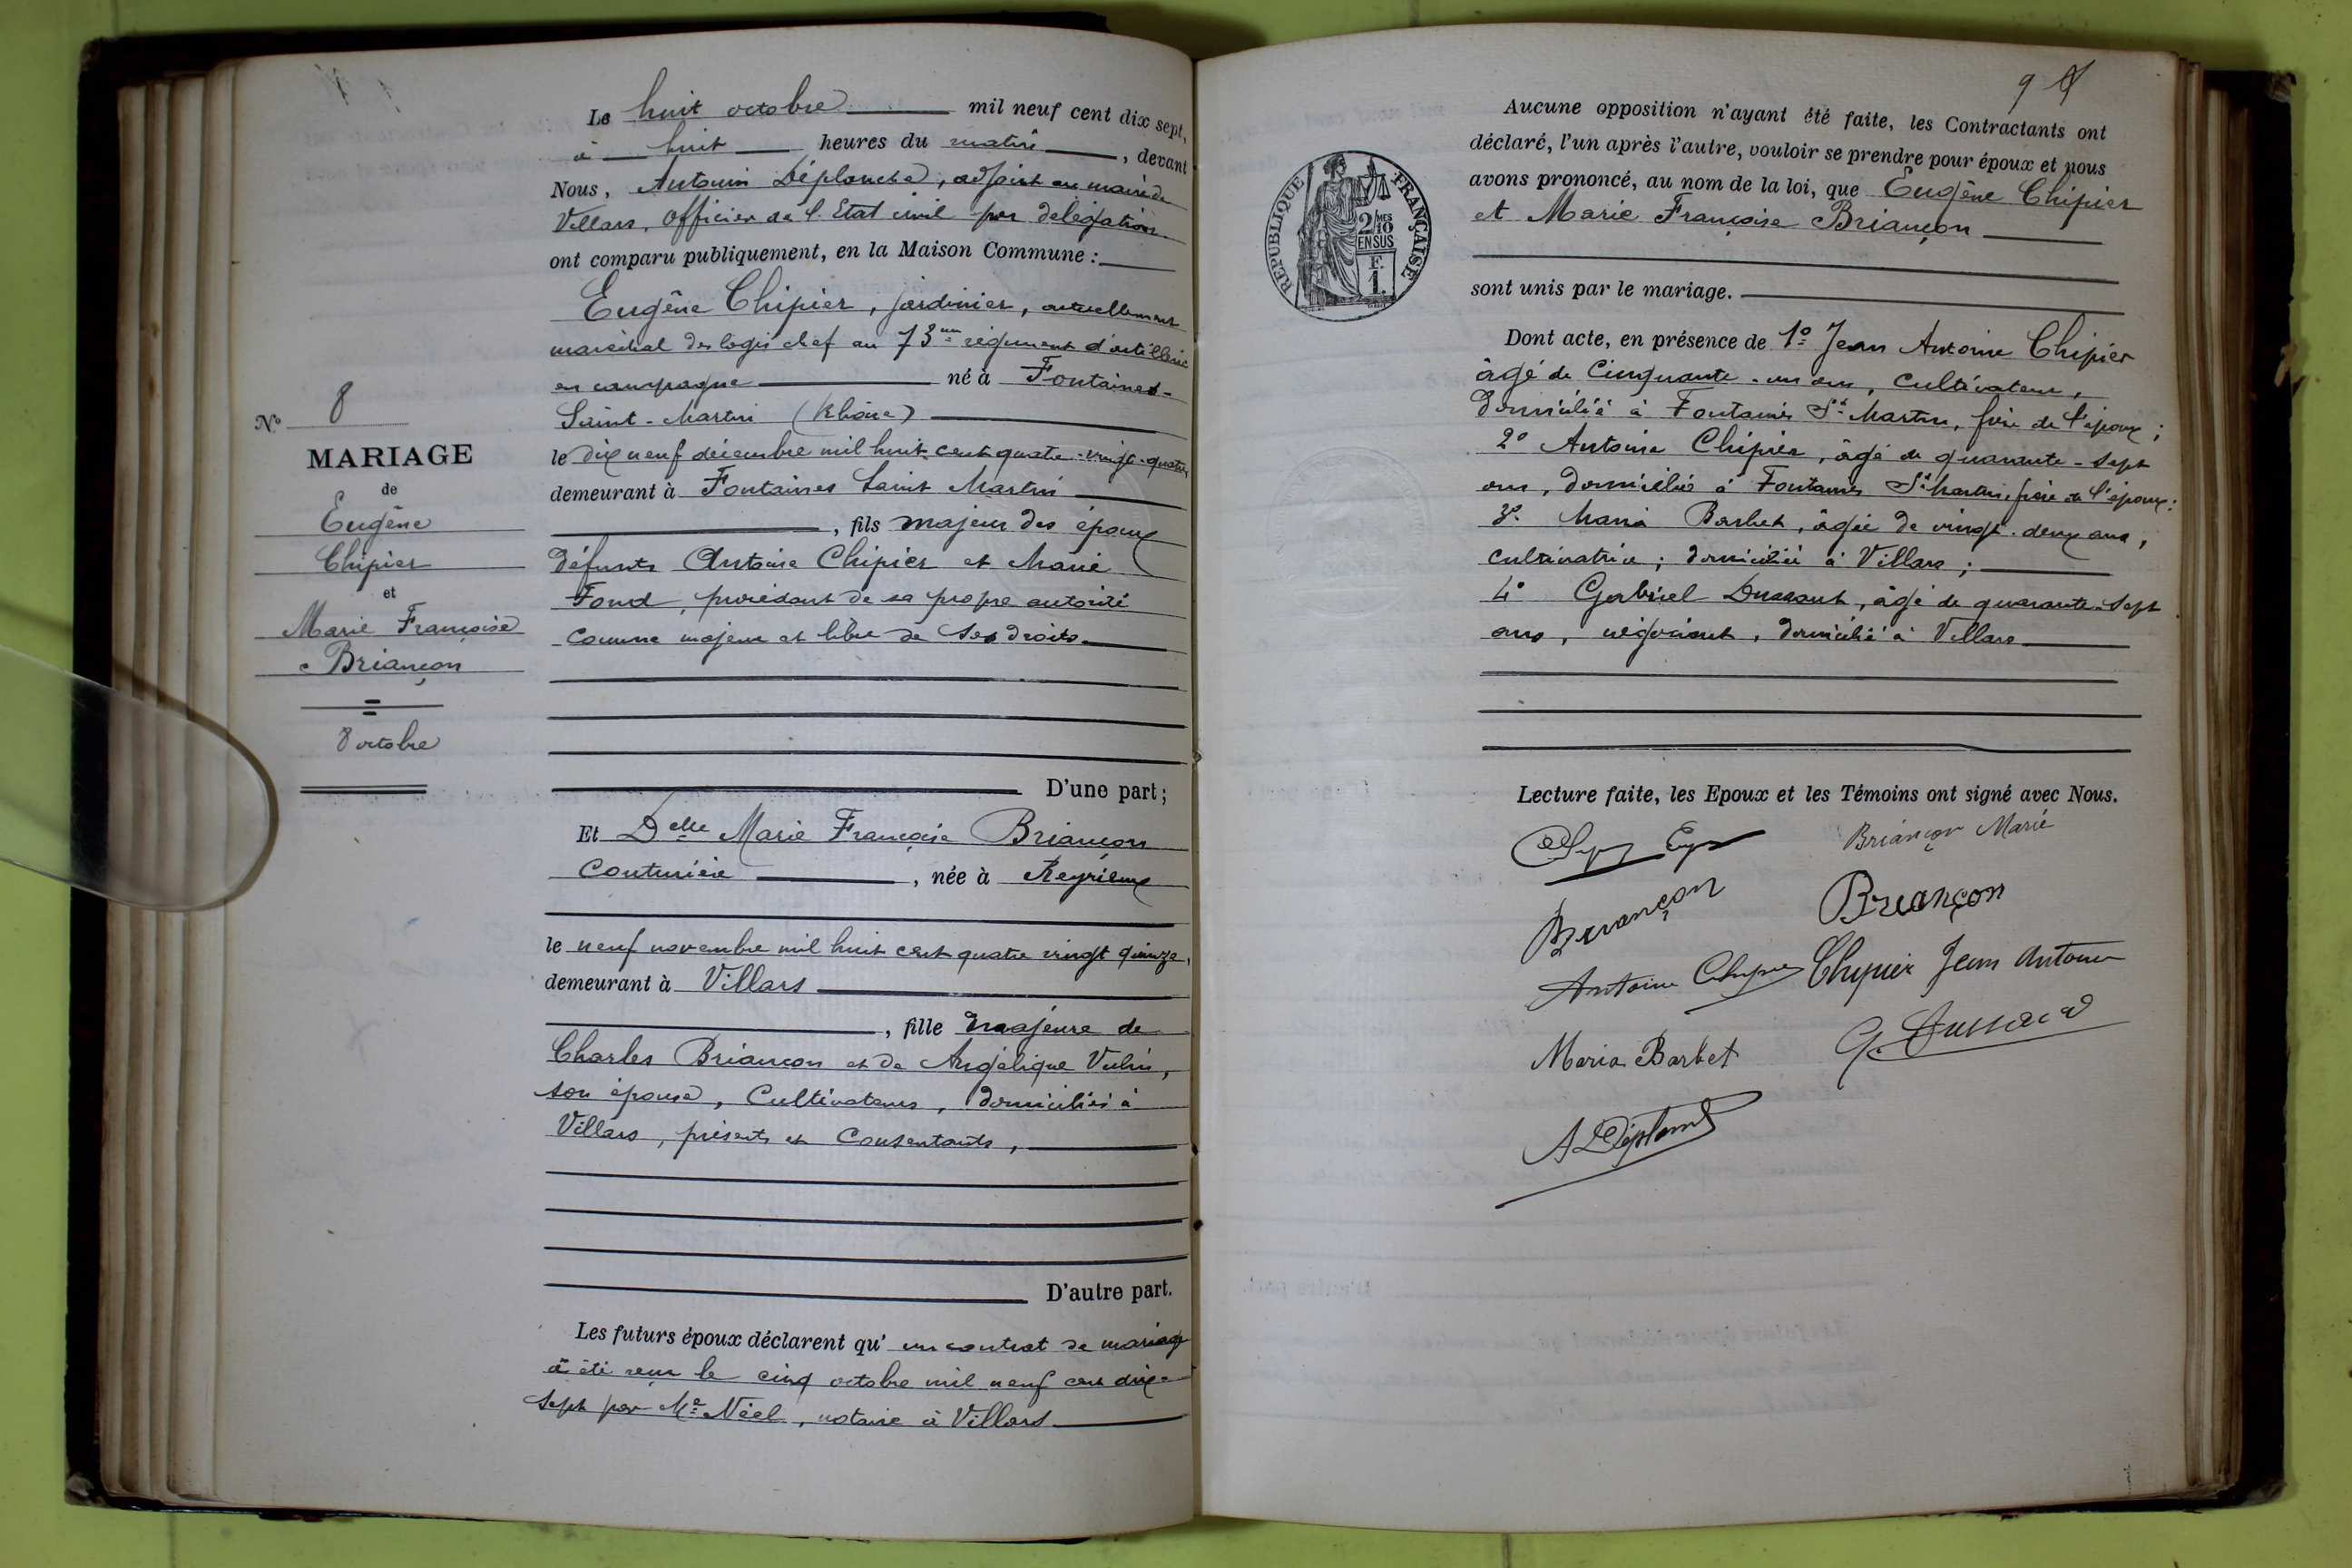 N° 8
MARIAGE
de
Eugène
Chipier
et
Marie Françoise
Briançon
8 octobre
Le huit octobre mil neuf cent dix sept,
à huit heures du matin, devant
Nous, Antonin Déplanche, adjoint au maire de
Villars, Officier de l'Etat civil par délégation
ont comparu publiquement, en la Maison Commune :
Eugène Chipier, jardinier, actuellement
maréchal des logis chef au 73me régiment d'artillerie
en campagne né à Fontaines-
Saint-Martin (Rhône)
le dix neuf décembre mil huit cent quatre-vingt-quatre
demeurant à Fontaines Saint Martin
, fils majeur des époux
défunts Antoine Chipier et Marie
Fond, procédant de sa propre autorité
comme majeur et libre de ses droits
D'une part ;
Et Delle Marie Françoise Briançon
Couturière, née à Reyrieux
le neuf novembre mil huit cent quatre vingt quinze,
demeurant à Villars
, fille majeure de
Charles Briançon et de Angélique Vulin,
son épouse, Cultivateurs, domiciliés à
Villars, présents et Consentants,
D'autre part.
Les futurs époux déclarent qu' un contrat de mariage
a été reçu le cinq octobre mil neuf cent dix-
sept par Me Néel, notaire à Villars
9
Aucune opposition n'ayant été faite, les Contractants ont
déclaré, l'un après l'autre, vouloir se prendre pour époux et nous
avons prononcé, au nom de la loi, que Eugène Chipier
et Marie Françoise Briançon
sont unis par le mariage.
RÉPUBLIQUE FRANÇAISE
2/10MES
EN SUS
F.
1.
Dont acte, en présence de 1° Jean Antoine Chipier
âgé de Cinquante-un ans, Cultivateur,
domicilié à Fontaines St Martin, frère de l'époux ;
2° Antoine Chipier, âgé de quarante-sept
ans, domicilié à Fontaines St Martin, frère de l'époux ;
3° Maria Barbet, âgée de vingt-deux ans,
cultivatrice ; domiciliée à Villars ;
4° Gabriel Dussaut, âgé de quarante-sept
ans, négociant, domicilié à Villars
Lecture faite, les Epoux et les Témoins ont signé avec Nous.
Briançon Marie
Briançon Briançon
Antoine Chipier Chipier Jean Antoine
Maria Barbet G. Dussaud
A Déplanch